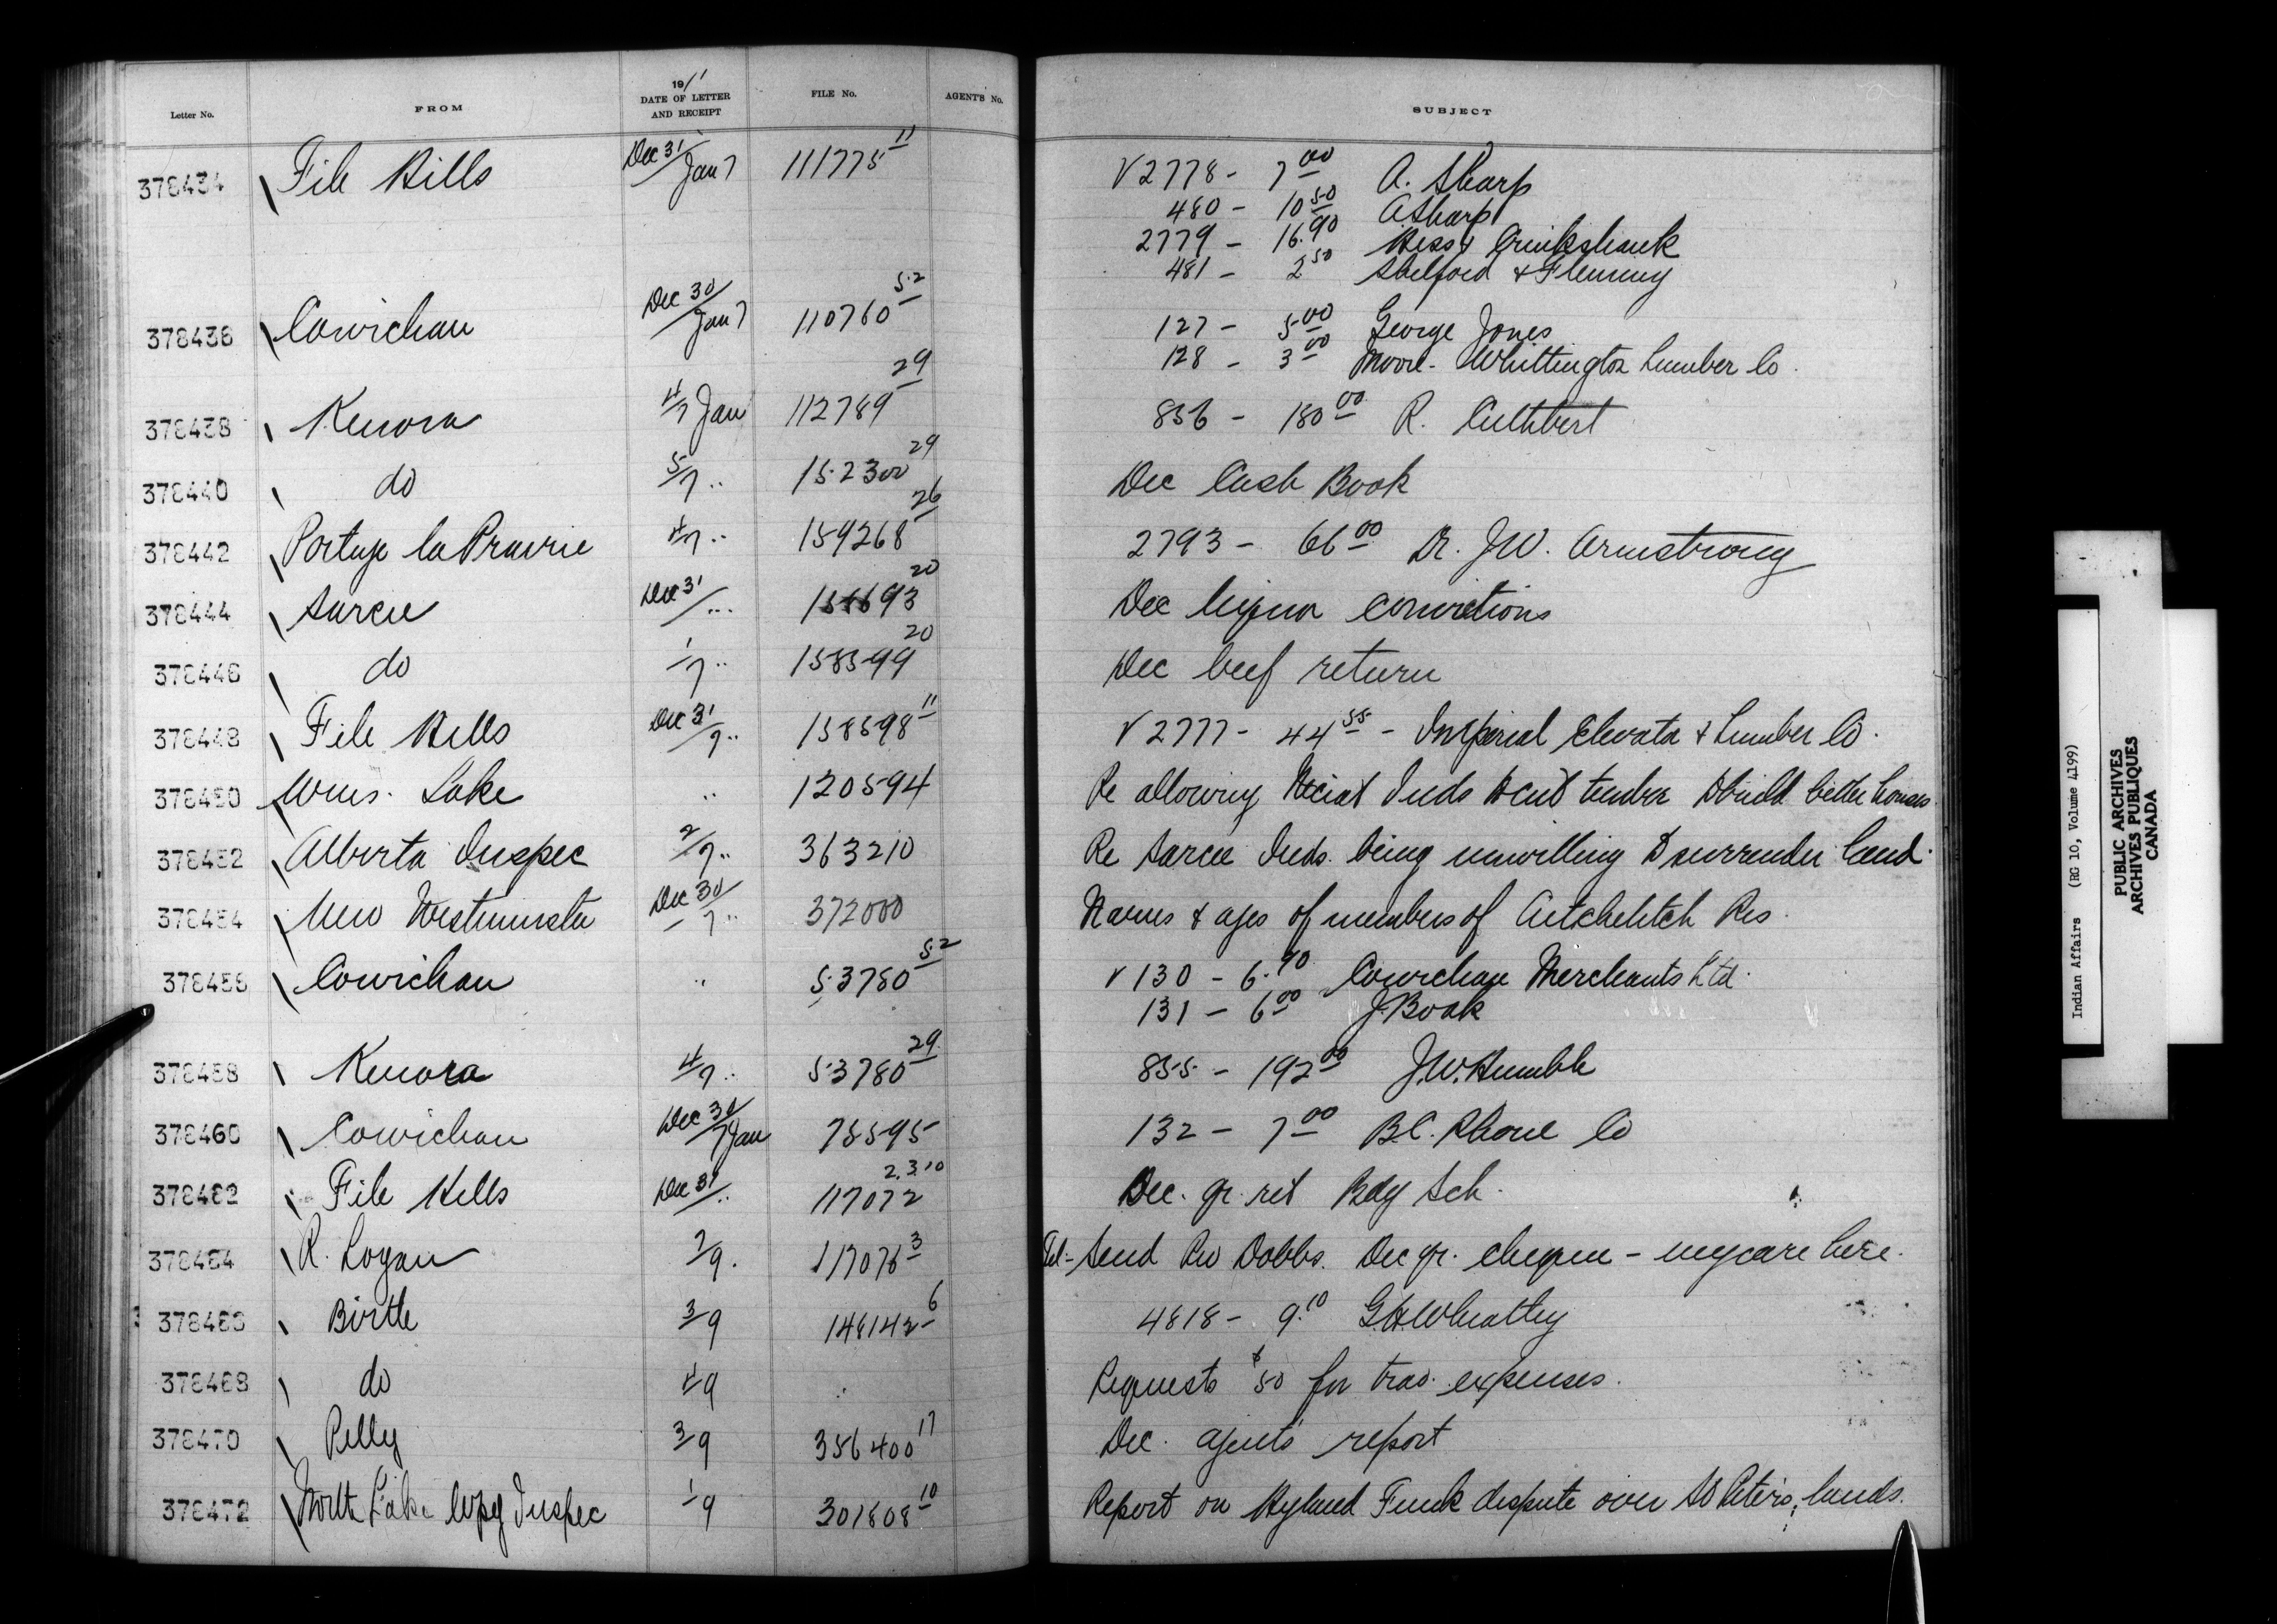 Letter No. FROM 1911 DATE OF LETTER AND RECEIPT FILE No. AGENT'S No. SUBJECT
378434 File Hills Dec 31/Jan 7 111775 11 V 2778 - 7 00 A. Sharp
480 - 10 50 A Sharp
2779 - 16.90 Hess & Cruikshank
481 - 2 50 Shelford & Fleming
378436 Cowichan Dec 30/Jan 7 110760 52 127 - 5 00 George Jones
128 - 3 00 Moore-Whittington Lumber Co.
378438 Kenora 4/7 Jan 112789 29 856 - 180 00 R. Cuthbert
378440 do 5/7 " 152300 29 Dec Cash Book
378442 Portage la Prairie 4/7 " 159268 26 2793 - 66 00 Dr. J.W. Armstrong
378444 Sarcee Dec 31/" 20 Dec liquor convictions
378446 do 1/7 " 158599 20 Dec beef return
378448 File Hills Dec 31/7 " 158598 11 V 2777 - 44 55 - Imperial Elevator & Lumber Co.
378450 Wms. Lake " 120594 Re allowing Inds to cut timber to build better houses.
378452 Alberta Inspec 2/7 " 363210 Re Sarcee Inds. being unwilling to surrender land.
378454 New Westminster Dec 30/7 " 372000 Names & ages of members of Aitchelitch Res.
378456 Cowichan " 53780 52 V 130 - 6.70 Cowichan Merchants Ltd.
131 - 6 00 J. Boak
378458 Kenora 4/7 " 53780 29 855 - 192 00 J.W. Humble
378460 Cowichan Dec 30/7 Jan 75595 132 - 7 00 B.C. Phone Co
378462 File Hills Dec 31/" 117072 2.3.10 Dec. qr. ret Bdg Sch.
378464 R. Logan 7/9. 117076 3 Tel- Send Rev Dobbs. Dec qr. cheque - my care here.
378466 Birtle 3/9 148142 6 4818 - 9.10 G H Wheatley
378468 do 4/9 " Requests $50 for trav. expenses.
378470 Pelly 3/9 356400 17 Dec. agents report
378472 North Lake Wpg Inspec 1/9 301808 10 Report on Hyland Funk dispute over St Peters lands.
Indian Affairs (RG 10, Volume 4199)
PUBLIC ARCHIVES
ARCHIVES PUBLIQUES
CANADA